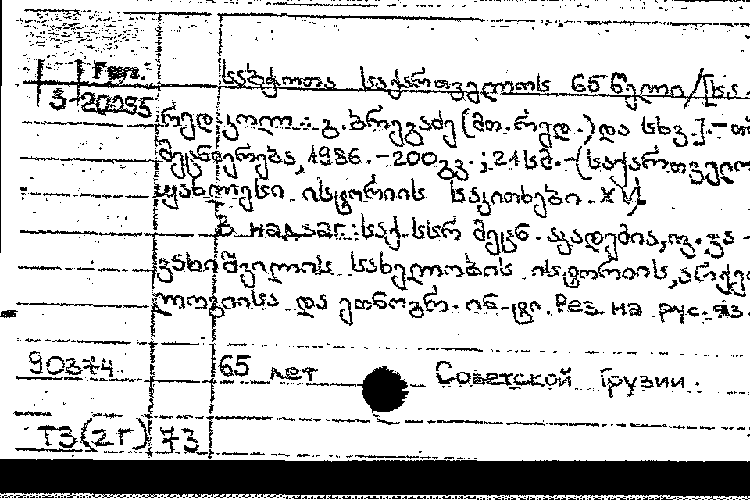 Груз.
3-20095
საბჭოთა საქართველოს 65 წელი/[ს.ს.
რედ. კოლ.: გ. ბრეგაძე (მთ. რედ.) და სხვ.].-თ
მეცნიერება, 1986.-200გვ.; 21სმ.-(საქართველო
უახლესი ისტორიის საკითხები. XVI
В надзаг.: საქ. სსრ მეცნ. აკადემია, ივ. ჯა-
ვახიშვილის სახელობის ისტორიის, არქეო
ლოგიისა და ეთნოგრ. ინ-ტი. Рез. на рус. яз.
90374 65 лет Советской Грузии.
Т3(2Г) 73